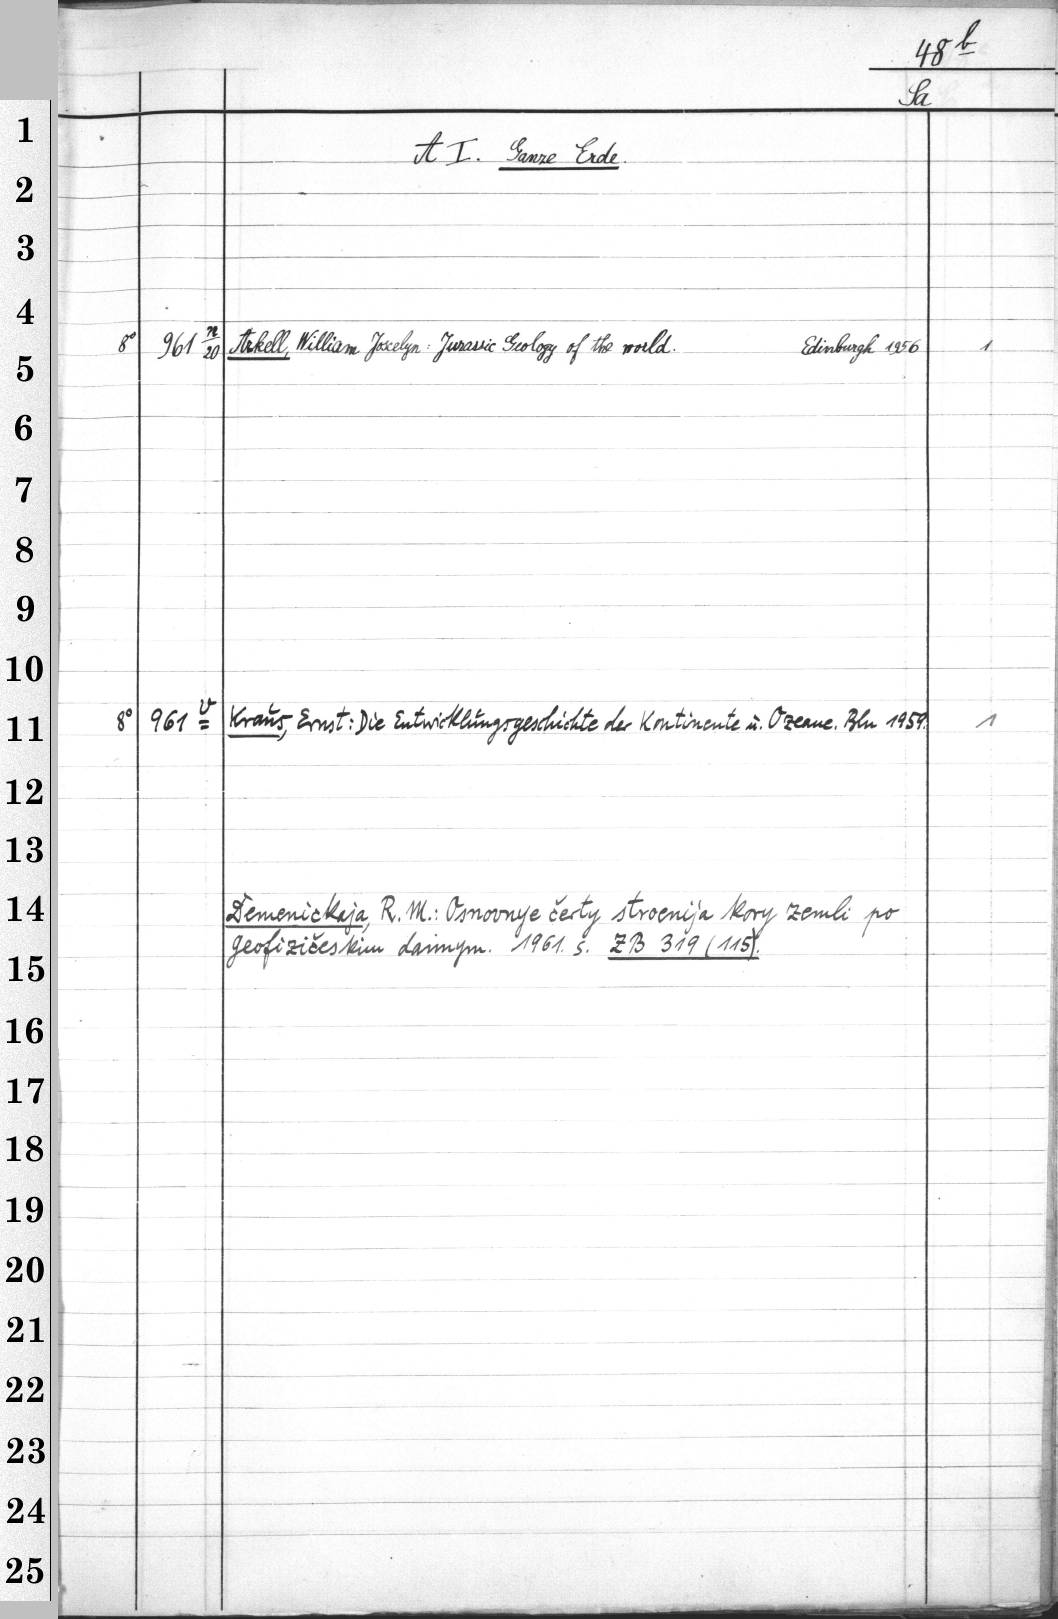 48 b
Sa
A I. Ganze Erde.
1
2
3
4
8° 961 n/20 Arkell, William Joscelyn: Jurassic Geology of the world. Edinburgh 1956 1
5
6
7
8
9
10
8° 961 v Kraus, Ernst: Die Entwicklungsgeschichte der Kontinente u. Ozeane. Bln 1959. 1
11
12
13
14
Demenickaja, R. M.: Osnovnye čerty stroenija kory zemli po
geofizičeskim dannym. 1961. s. ZB 319 (115).
15
16
17
18
19
20
21
22
23
24
25